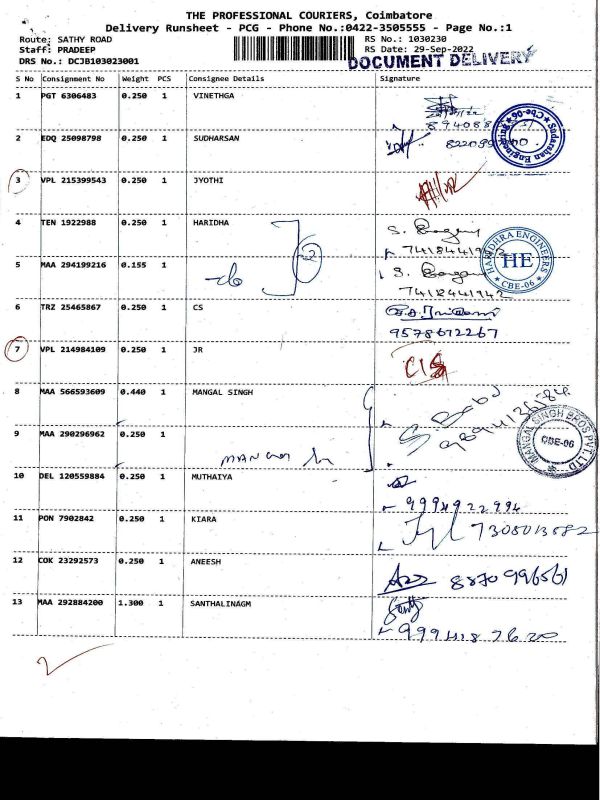 THE PROFESSIONAL COURIERS, Coimbatore
Delivery Runsheet - PCG - Phone No.:0422-3505555 - Page No.:1
Route: SATHY ROAD RS No.: 1030230
Staff: PRADEEP RS Date: 29-Sep-2022
DRS No.: DCJB103023001 DOCUMENT DELIVERY
S No Consignment No Weight PCS Consignee Details Signature
1 PGT 6306483 0.250 1 VINETHGA
2 EDQ 25098798 0.250 1 SUDHARSAN
Sudarshan Engineering Cbe-06
3 VPL 215399543 0.250 1 JYOTHI
4 TEN 1922988 0.250 1 HARIDHA
HARIDHRA ENGINEERS HE CBE-06
5 MAA 294199216 0.155 1 S.
7418441942
6 TRZ 25465867 0.250 1 CS
9578672267
7 VPL 214984109 0.250 1 JR
8 MAA 566593609 0.440 1 MANGAL SINGH
S. Babu
MANGAL SINGH BROS PVT. LTD CBE-06
9 MAA 290296962 0.250 1
10 DEL 120559884 0.250 1 MUTHAIYA
9994922994
11 PON 7902842 0.250 1 KIARA
7305013582
12 COK 23292573 0.250 1 ANEESH
13 MAA 292884200 1.300 1 SANTHALINAGM